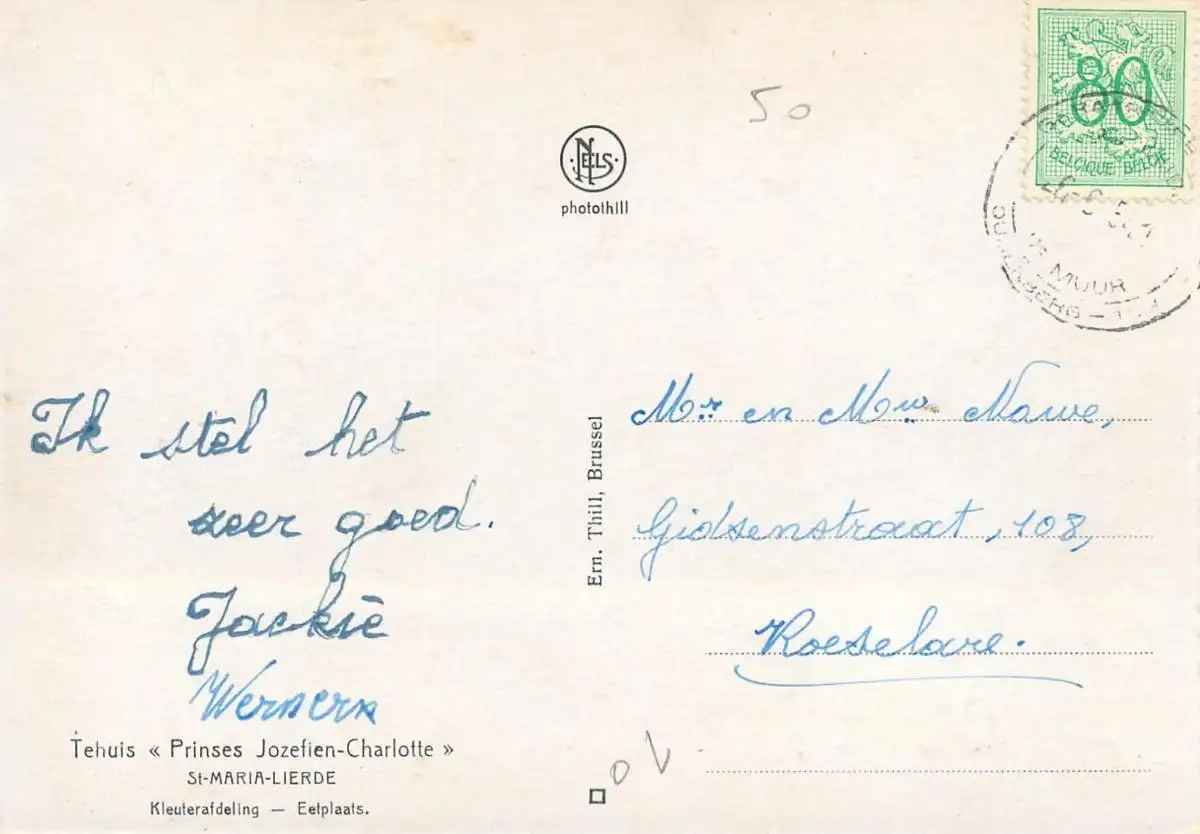 50
80
BELGIQUE BELGIE
NELS
photothill
DE MUUR
Ik stel het
zeer goed.
Jackie
Ern. Thill, Brussel
Mr en Mw Nawe,
Gidsenstraat, 108,
Roeselare.
Tehuis « Prinses Jozefien-Charlotte »
St-MARIA-LIERDE
Kleuterafdeling — Eetplaats.